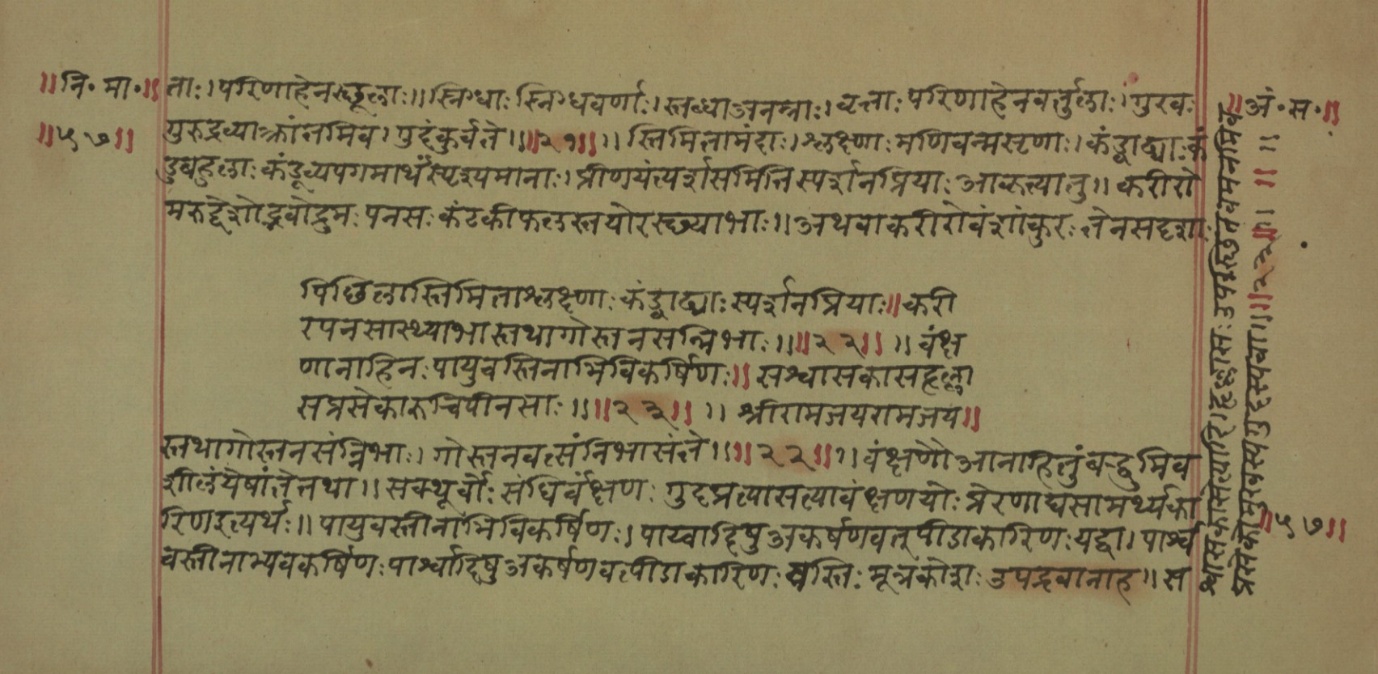 ॥नि॰मा॰॥ ताः।परिणाहेनस्छूलाः॥स्निग्धाः स्निग्धवर्णाः।स्तब्धाअनम्राः।वृत्ताः परिणाहेनवर्तुलाः।गुरवः ॥अं॰स॰॥
॥५७॥ गुरुद्रव्याक्रांतमिव।गुदंकुर्वते॥॥२१॥॥स्तिमितामंदाः।श्लक्ष्णाः मणिवन्मसृणाः।कंड्वाढ्याः कं
डुबहुलाः कंडूव्यपगमार्थंस्पृश्यमानाः।प्रीणयंत्यर्शासमिति स्पर्शनप्रियाः आकृत्यातु॥करीरो
मरुद्देशोद्भवोद्रुमः पनसः कंटकीफलस्तयोरस्छ्याभाः॥अथवाकरीरोवंशांकुरः तेनसदृशाः
पिछिलास्तिमिताश्लक्ष्णाः कंड्वाढ्याः स्पर्शनप्रियाः॥करी
रपनसास्थ्याभास्तथागोस्तनसन्निभाः॥॥२२॥॥वंक्ष
णानाहिनः पायुवस्तिनाभिविकर्षिणः॥सश्वासकासहृल्ला
सप्रसेकारुचिपीनसाः॥॥२३॥॥श्रीरामजयरामजय॥
स्तथागोस्तनसंन्निभाः।गोस्तनवत्संनिभासंते॥॥२२॥॥वंक्षणौआनाहितुंबद्धुमिव
शीलंयेषांतेतथा॥सक्थूर्वोः संधिर्वंक्षणः गुदप्रत्यासत्यावंक्षणयोः प्रेरणाद्यसामर्थ्यका
रिणइत्यर्थः॥पायुवस्तीनाभिविकर्षिणः।पाय्वादिषुअकर्षणवत्पीडाकारिणः यद्वा।पार्श्व
वस्तीनाभ्यवकर्षिणः पार्श्वादिषुअकर्षणवत्पीडाकारिणः वस्तिः मूत्रकोशः उपद्रवानाह॥स
श्वासकासेत्यादि।हृल्लासः उपस्छितवमनमिव
प्रसेकोमुखस्यगुदस्यवा॥॥२३॥॥॥॥
॥५७॥